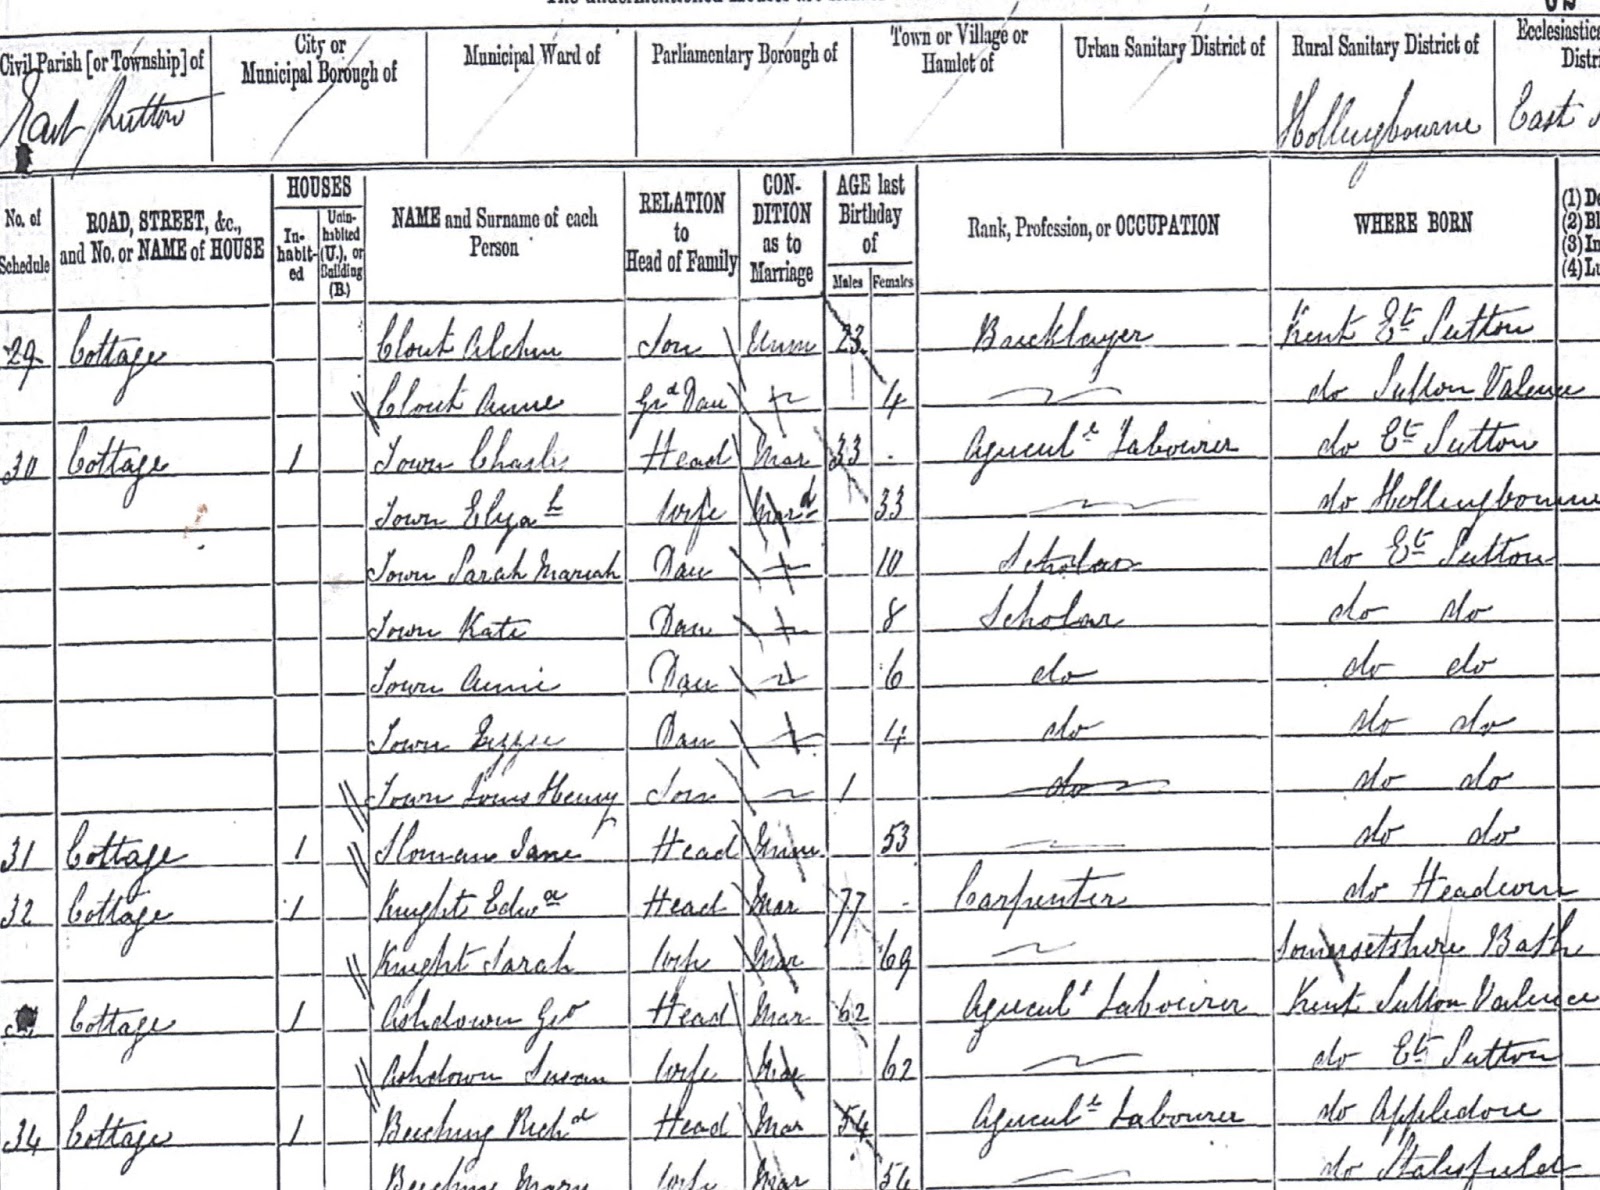 Civil Parish [or Township] of City or Municipal Borough of Municipal Ward of Parliamentary Borough of Town or Village or Hamlet of Urban Sanitary District of Rural Sanitary District of
East Sutton Hollingbourne East
No. of Schedule ROAD, STREET, &c., and No. or NAME of HOUSE HOUSES In-habit-ed Unin-habited (U.), or Building (B.) NAME and Surname of each Person RELATION to Head of Family CON-DITION as to Marriage AGE last Birthday of Males Females Rank, Profession, or OCCUPATION WHERE BORN
(1)
(2)
(3)
(4)
29 Cottage Clout Alchin Son Unm 23 Bricklayer Kent Et Sutton
Clout Annie Grd Dau 4 do Sutton Valence
30 Cottage 1 Town Charles Head Mar 33 Agricull Labourer do Et Sutton
Town Elizah Wife Mard 33 do Hollingbourne
Town Sarah Mariah Dau 10 Scholar do Et Sutton
Town Kate Dau 8 Scholar do do
Town Annie Dau 6 do do do
Town Lizzie Dau 4 do do do
Town Louis Henry Son 1 do do do
31 Cottage 1 Sloman Jane Head Unm 53 do do
32 Cottage 1 Knight Edwd Head Mar 77 Carpenter do Headcorn
Knight Sarah Wife Mar 69 Somersetshire Bath
Cottage 1 Ashdown Geo Head Mar 62 Agricull Labourer Kent Sutton Valence
Ashdown Susan Wife Mar 62 do Et Sutton
34 Cottage 1 Beeching Richd Head Mar 54 Agricull Labourer do Appledore
Beeching Mary Wife Mar do Stalisfield